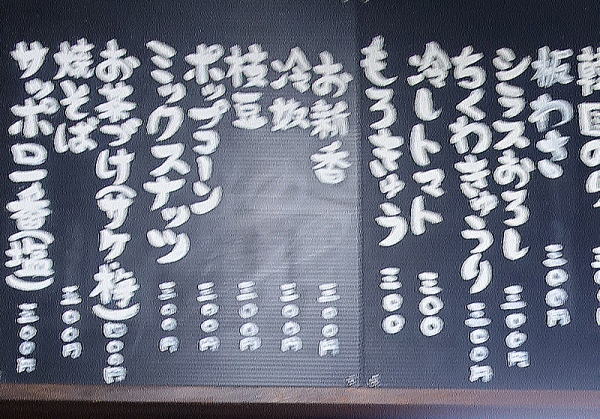 韓国の
板わさ 三〇〇円
シラスおろし 三〇〇円
ちくわきゅうり 三〇〇円
冷しトマト 三〇〇
もろきゅう 三〇〇
お新香 三〇〇円
冷奴 三〇〇円
枝豆 三〇〇円
ポップコーン 三〇〇円
ミックスナッツ 三〇〇円
お茶づけ(サケ・梅) 三〇〇円
焼そば 三〇〇円
サッポロ一番(塩) 三〇〇円